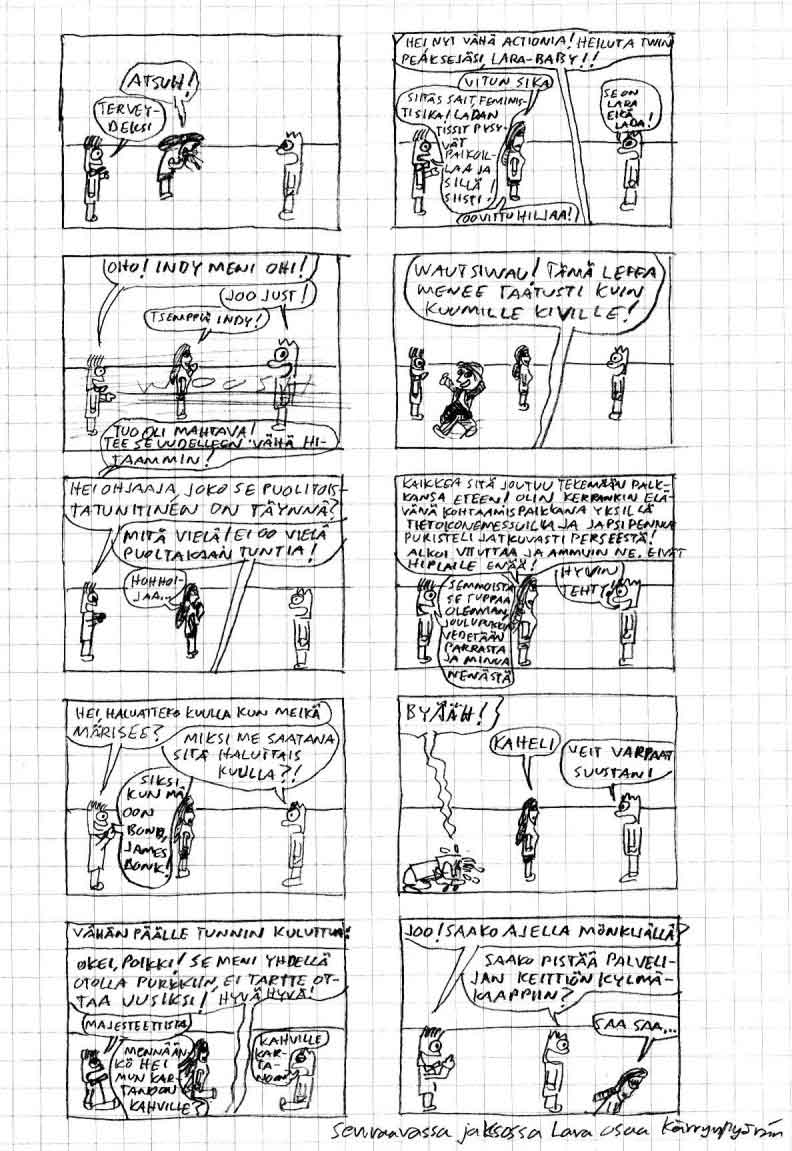 ATSUH!
TERVEY-
DEKSI
HEI NYT VÄHÄ ACTIONIA! HEILUTA TWIN
PEAKSEJÄSI, LARA-BABY!!
VITUN SIKA
SIITÄS SAIT, FEMINIS-
TISIKA! LADAN
TISSIT PYSY-
VÄT
PAIKOIL-
LAA JA
SILLÄ
SIISTI!
OO VITTU HILJAA!
SE ON
LARA
EIKÄ
LADA!
OHO! INDY MENI OHI!
JOO JUST!
TSEMPPIÄ INDY!
WOOOSH
TUO OLI MAHTAVA!
TEE SE UUDELLEEN VÄHÄ HI-
TAAMMIN!
WAUTSIWAU! TÄMÄ LEFFA
MENEE TAATUSTI KUIN
KUUMILLE KIVILLE!
HEI OHJAAJA, JOKO SE PUOLITOIS-
TATUNTINEN ON TÄYNNÄ?
MITÄ VIELÄ! EI OO VIELÄ
PUOLTAKAAN TUNTIA!
HOHHOI-
JAA...
KAIKKEA SITÄ JOUTUU TEKEMÄÄN PALK-
KANSA ETEEN! OLIN KERRANKIN ELÄ-
VÄNÄ KOHTAAMISPAIKKANA YKSILLÄ
TIETOKONEMESSUILLA JA JAPSIPENNUT
PURISTELI JATKUVASTI PERSEESTÄ!
ALKOI VITUTTAA JA AMMUIN NE. EIVÄT
HIPLAILE ENÄÄ!
SEMMOISTA
SE TUPPAA
OLEMAAN
JOULUPUKKIA
VEDETÄÄN
PARRASTA
JA MINUA
NENÄSTÄ
HYVIN
TEHTY!
HEI, HALUATTEKO KUULLA KUN MEIKÄ
MÄRISEE?
MIKSI ME SAATANA
SITÄ HALUTTAIS
KUULLA?!
SIKSI
KUN MÄ
OON
BOND,
JAMES
BONK!
BYÄÄÄH!
KAHELI
VEIT VARPAAT
SUUSTANI
VÄHÄN PÄÄLLE TUNNIN KULUTTUA:
OKEI, POIKKI! SE MENI YHDELLÄ
OTOLLA PURKKIIN, EI TARTTE OT-
TAA UUSIKSI! HYVÄ HYVÄ!
MAJESTEETTISTA
MENNÄÄN
KÖ HEI
MUN KAR-
TANOON
KAHVILLE?
KAHVILLE
KAR-
TA-
NOON
JOO! SAAKO AJELLA MÖNKIJÄLLÄ?
SAAKO PISTÄÄ PALVELI-
JAN KEITTIÖN KYLMÄ-
KAAPPIIN?
SAA SAA...
Seuraavassa jaksossa Lara osaa kärrynpyörän